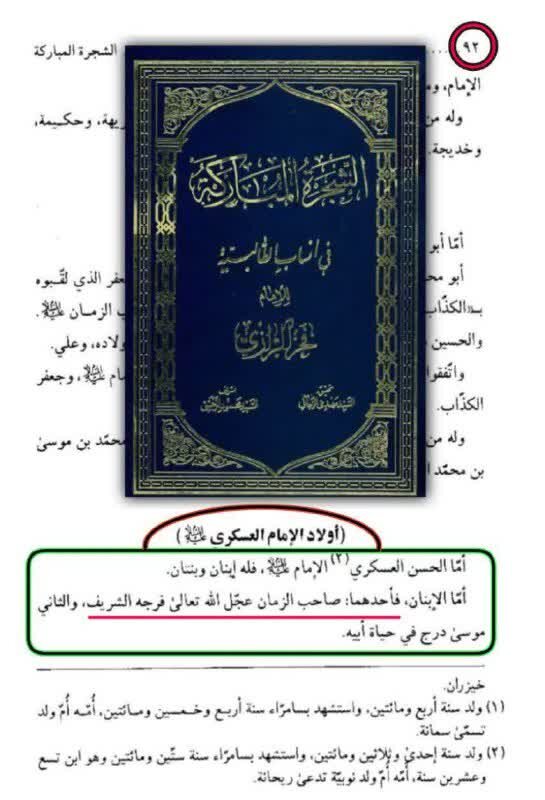 ٩٢ .... الشجرة المباركة
الإمام، وم
وله من يهة، وحكيمة،
وخديجة.
الشجرة المباركة
في أنساب الطالبية
للإمام
فخر الرازي
تحقيق
السيد مهدي الرجائي
أمّا أبو
أبو محم عفر الذي لقّبوه
بـ«الكذّاب ب الزمان عليه السلام.
والحسين ولاده، وعلي.
واتّفقوا ام عليه السلام، وجعفر
الكذّاب.
وله من محمّد بن موسىٰ
بن محمّد ا
(أولاد الإمام العسكري عليه السلام)
أمّا الحسن العسكري(٢) الإمام عليه السلام، فله إبنان وبنتان.
أمّا الإبنان، فأحدهما: صاحب الزمان عجّل الله تعالىٰ فرجه الشريف، والثاني
موسىٰ درج في حياة أبيه.
خيزران.
(١) ولد سنة أربع ومائتين، واستشهد بسامرّاء سنة أربع وخمسين ومائتين، أُمّه أُمّ ولد
تسمّىٰ سمانة.
(٢) ولد سنة إحدىٰ وثلاثين ومائتين، واستشهد بسامرّاء سنة ستّين ومائتين وهو ابن تسع
وعشرين سنة، أُمّه أُمّ ولد نوبيّة تدعىٰ ريحانة.